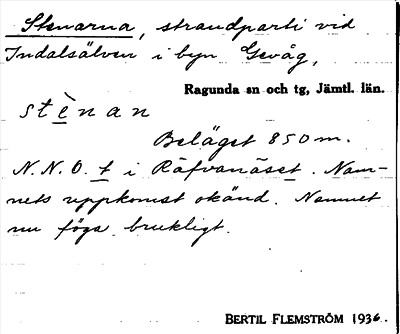 Stenarna, strandparti vid
Indalsälven i byn Gevåg,
Ragunda sn och tg, Jämtl. län.
stènan
Beläget 850 m.
N. N. O. t i Räfvanäset. Nam-
nets uppkomst okänd. Namnet
nu föga brukligt.
BERTIL FLEMSTRÖM 1936.